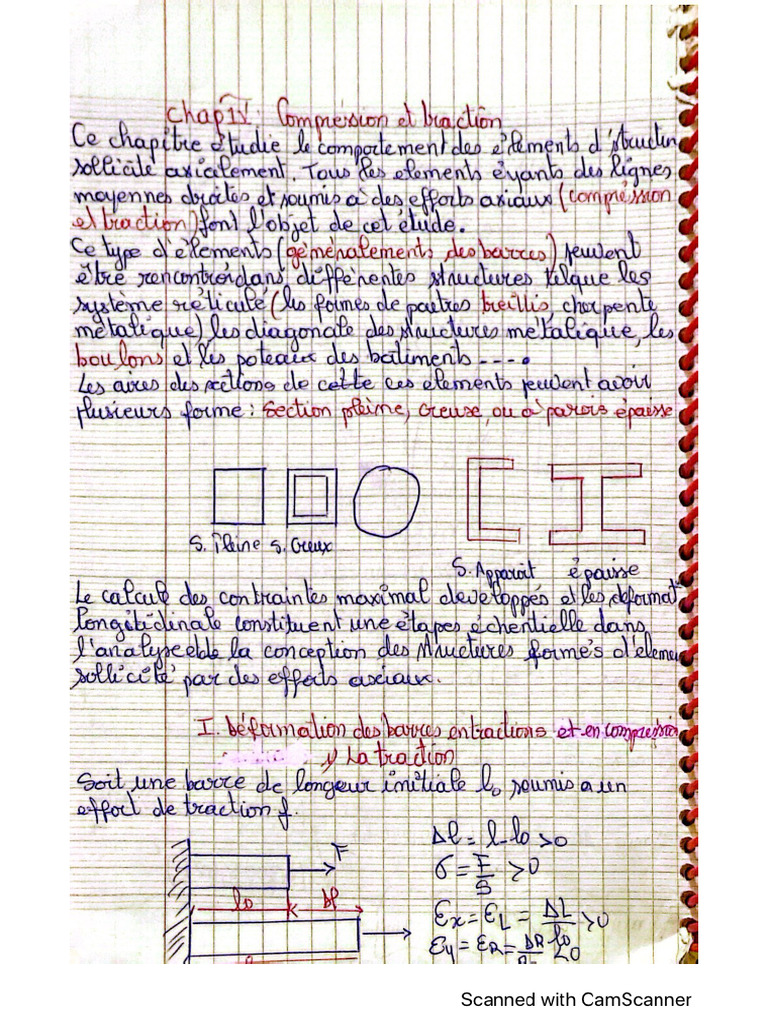 Chap IV: Compression et traction
Ce chapitre étudie le comportement des éléments d'structur
sollicité axialement. Tous les elements éyants des lignes
moyennes droites et soumis à des efforts axiaux (compréssion
et traction) font l'objet de cet étude.
Ce type d'élements (généralements des barres) peuvent
être rencontrér dans différentes structures telque les
système réticulé (les formes de poutres treillis, cherpente
métalique) les diagonale des structures métalique, les
boulons et les poteaux des batiments ----.
Les aires des sections de cette ces elements peuvent avoir
plusieurs forme: Section pleine, creuse, ou à parois épaisse
S. Pleine S. Creux
S. Apparoit épaisse
Le calcul des contraintes maximal developpés et les déformat
longitidinale constituent une étapes échentielle dans
l'analyse et de la conception des structures formés d'éleme
sollicité par des efforts axiaux.
I. Déformation des barres en tractions et en compression
1) La traction
Soit une barre de longeur initiale l0 soumis a un
effort de traction f.
Δl = l - l0 > 0
F
σ = F/S > 0
l0 Δl
Ex = EL = ΔL/l0 > 0
Ey = ER = ΔR/ <0
Scanned with CamScanner